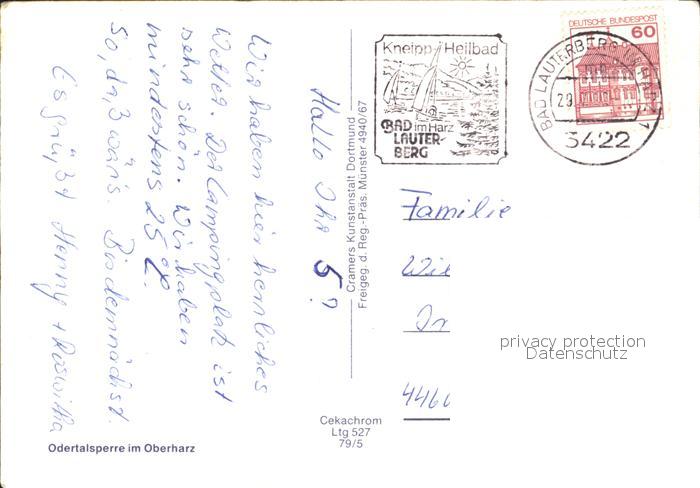 Hallo Ihr 5?
Wir haben hier herrliches
Wetter. Der Campingplatz ist
sehr schön. Wir haben
mindestens 25 C.
So, da, 3 wär's. Bis demnächst.
Es grüßt Henny + Roswitha
Odertalsperre im Oberharz
Cramers Kunstanstalt Dortmund
Freigeg. d. Reg.-Präs. Münster 4940/67
Cekachrom
Ltg 527
79/5
Kneipp Heilbad
BAD im Harz
LAUTER-
BERG
DEUTSCHE BUNDESPOST
60
BAD LAUTERBERG IM HARZ 1
29
3422
Familie
Wie
446
privacy protection
Datenschutz